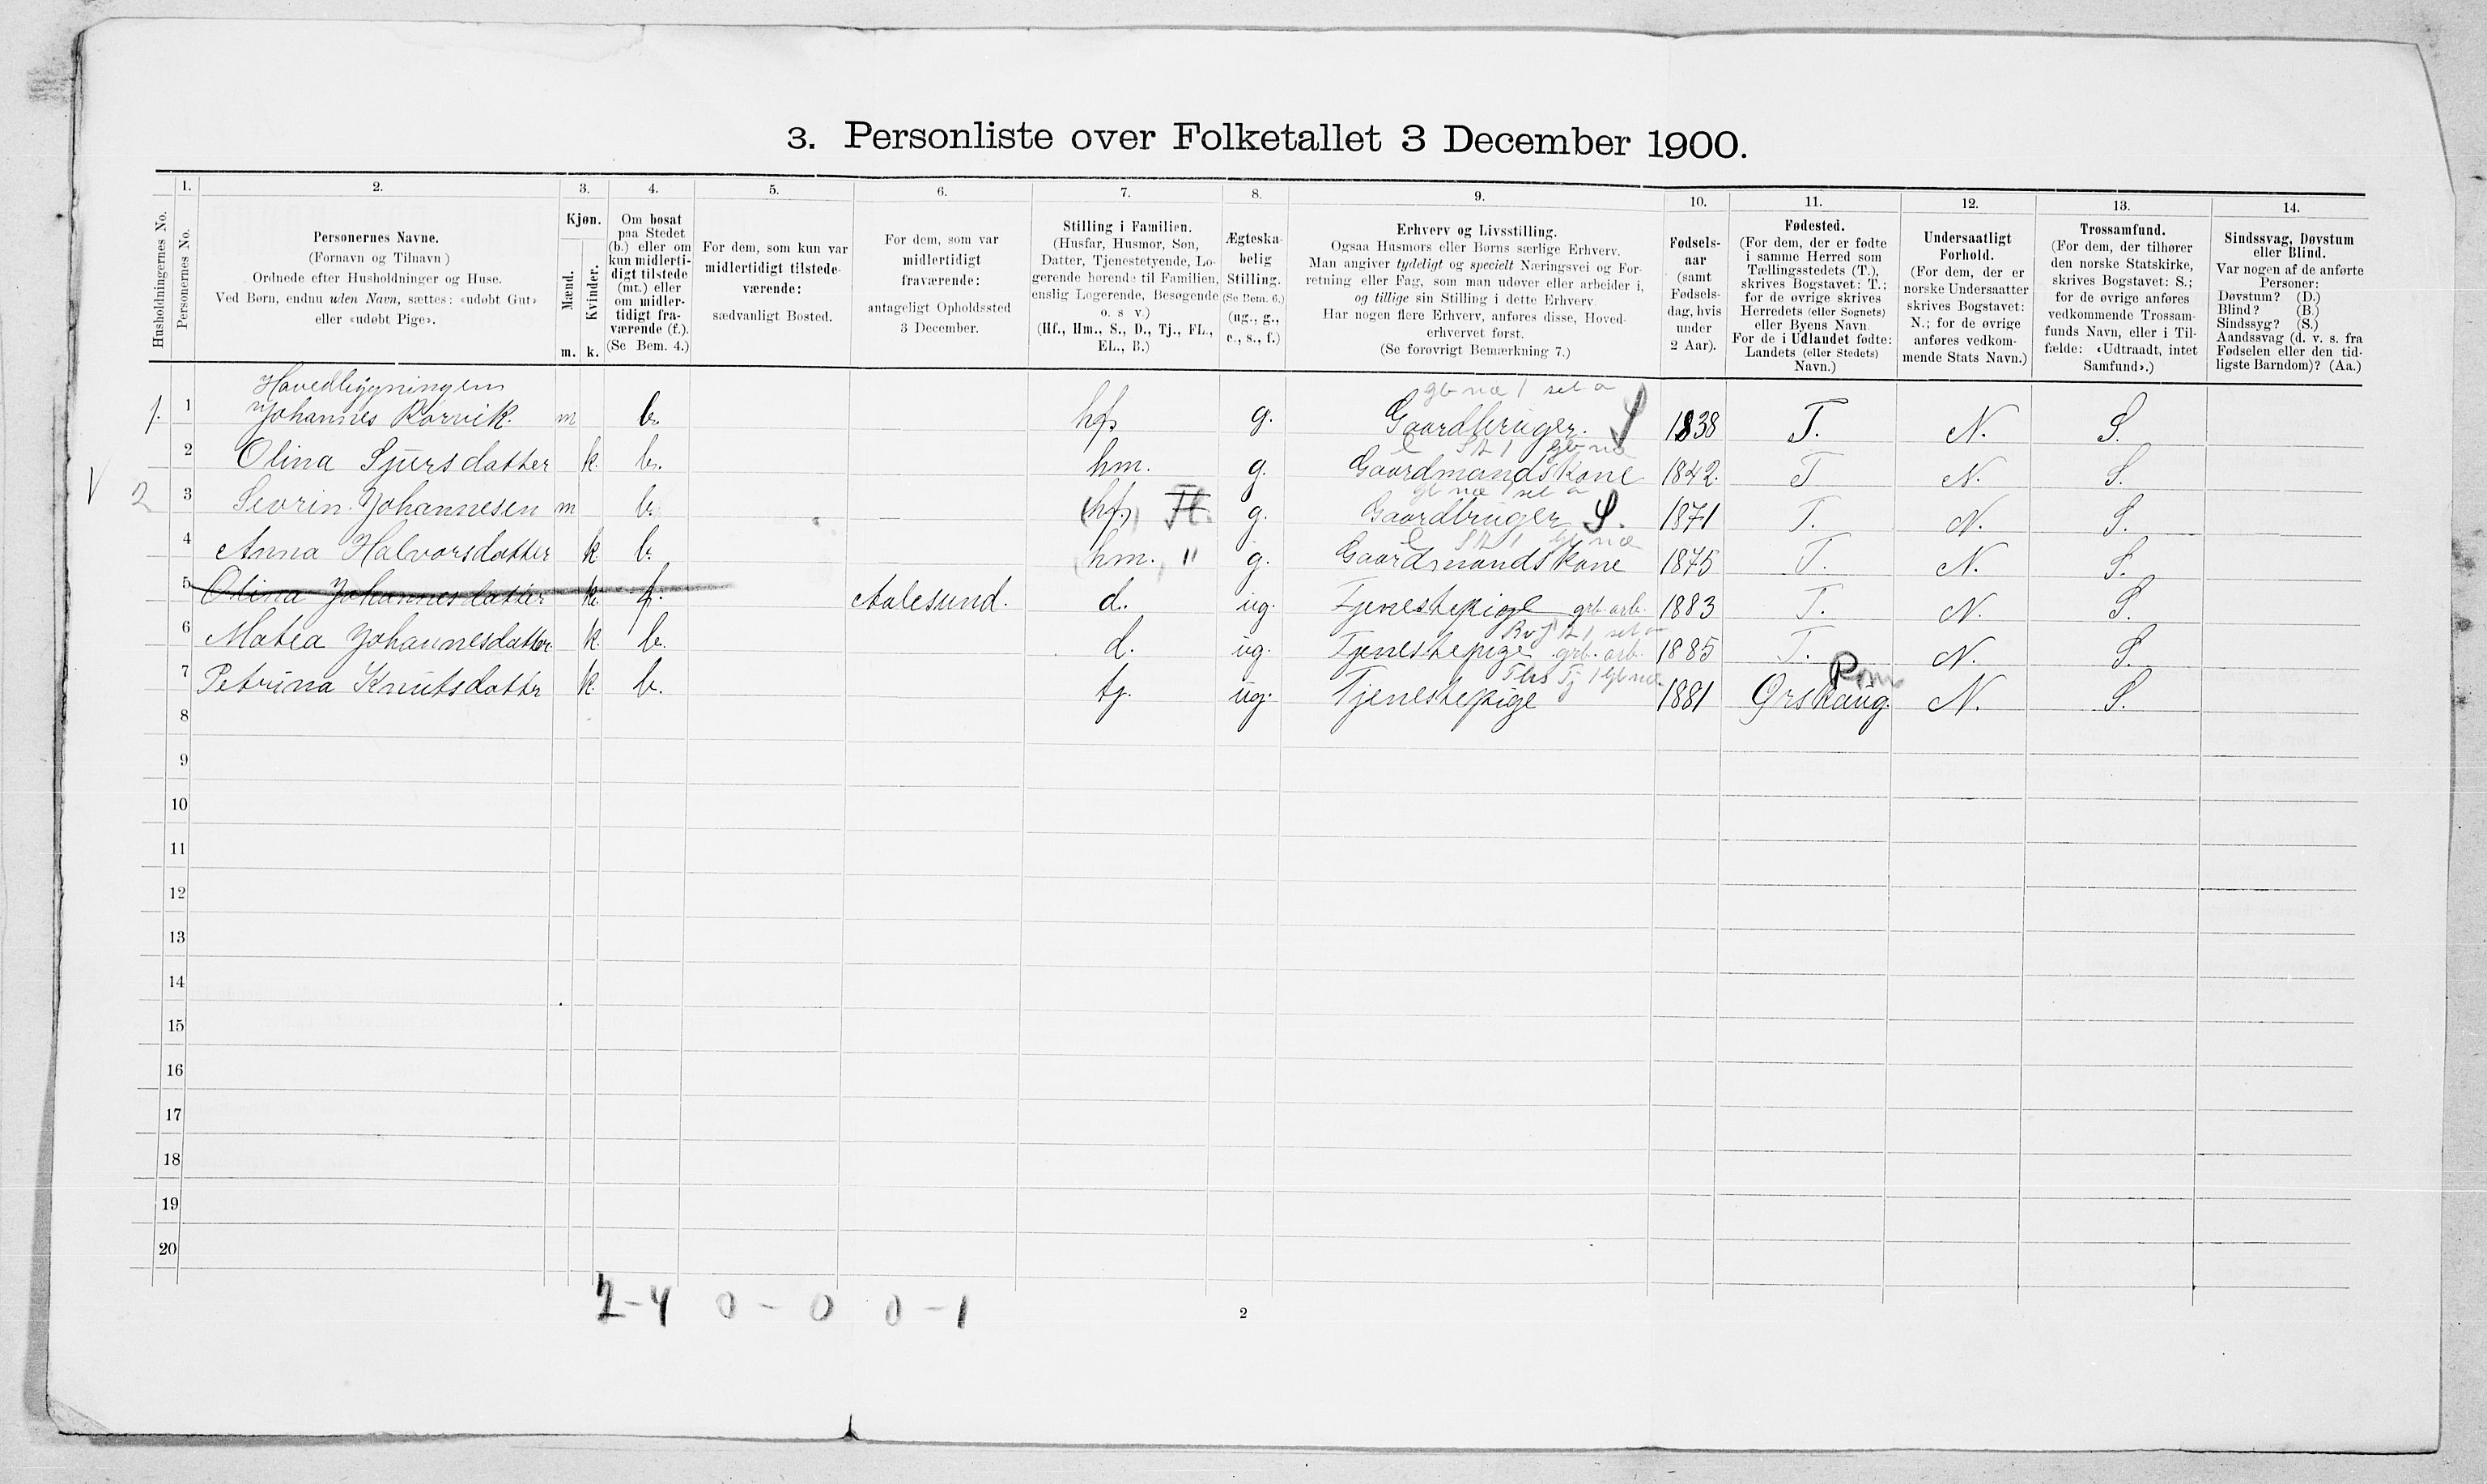 3. Personliste over Folketallet 3 December 1900.
Husholdningernes No.
1.
Personernes No.
2.
Personernes Navne.
(Fornavn og Tilnavn)
Ordnede efter Husholdninger og Huse.
Ved Børn, endnu uden Navn, sættes: «udøbt Gut»
eller «udøbt Pige».
3.
Kjøn.
Mænd.
Kvinder.
m. k.
4.
Om bosat
paa Stedet
(b.) eller om
kun midlerti-
digt tilstede
(mt.) eller
om midler-
tidigt fra-
værende (f.).
(Se Bem. 4.)
5.
For dem, som kun var
midlertidigt tilstede-
værende:
sædvanligt Bosted.
6.
For dem, som var
midlertidigt
fraværende:
antageligt Opholdssted
3 December.
7.
Stilling i Familien.
(Husfar, Husmor, Søn,
Datter, Tjenestetyende, Lo-
gerende hørende til Familien,
enslig Logerende, Besøgende
o. s v.)
(Hf., Hm., S., D., Tj., FL.,
EL., B.)
8.
Ægteska-
belig
Stilling.
(Se Bem. 6.)
(ug., g.,
e., s., f.)
9.
Erhverv og Livsstilling.
Ogsaa Husmors eller Børns særlige Erhverv.
Man angiver tydeligt og specielt Næringsvei og For-
retning eller Fag, som man udøver eller arbeider i,
og tillige sin Stilling i dette Erhverv
Har nogen flere Erhverv, anføres disse, Hoved-
erhvervet først.
(Se forøvrigt Bemærkning 7.)
10.
Fødsels-
aar
(samt
Fødsels-
dag, hvis
under
2 Aar).
11.
Fødested.
(For dem, der er fødte
i samme Herred som
Tællingsstedets (T.),
skrives Bogstavet: T.;
for de øvrige skrives
Herredets (eller Sognets)
eller Byens Navn
For de i Udlandet fødte:
Landets (eller Stedets)
Navn.)
12.
Undersaatligt
Forhold.
(For dem, der er
norske Undersaatter
skrives Bogstavet:
N.; for de øvrige
anføres vedkom-
mende Stats Navn.)
13.
Trossamfund.
(For dem, der tilhører
den norske Statskirke,
skrives Bogstavet: S.;
for de øvrige anføres
vedkommende Trossam-
funds Navn, eller i Til-
fælde: «Udtraadt, intet
Samfund».)
14.
Sindssvag, Døvstum
eller Blind.
Var nogen af de anførte
Personer:
Døvstum? (D.)
Blind? (B.)
Sindssyg? (S.)
Aandssvag (d. v. s. fra
Fødselen eller den tid-
ligste Barndom)? (Aa.)
Hovedbygningen
1. 1 Johannes Rørvik. m b. hf. g. Gaardbruger. S 1838 T. N. S.
2 Olina Sjursdatter k. b. hm. g. Gaardmandskone 1842. T N. S.
V 2 3 Sevrin Johannesen m b. (hf.) Fl. g. Gaardbruger S. 1871 T. N. S.
4 Anna Halvorsdatter k. b. (hm.) " g. Gaardmandskone 1875 T. N. S.
5 Olina Johannesdatter k. f. Aalesund. d. ug. Tjenestepige grb. arb. 1883 T. N. S.
6 Matea Johannesdatter k. b. d. ug. Tjenestepige grb. arb. 1885 T. N. S.
7 Petrina Knutsdatter k. b. tj. ug. Tjenestepige 1881 Ørskaug. N. S.
8
9
10
11
12
13
14
15
16
17
18
19
20
2-4 0-0 0-1
2